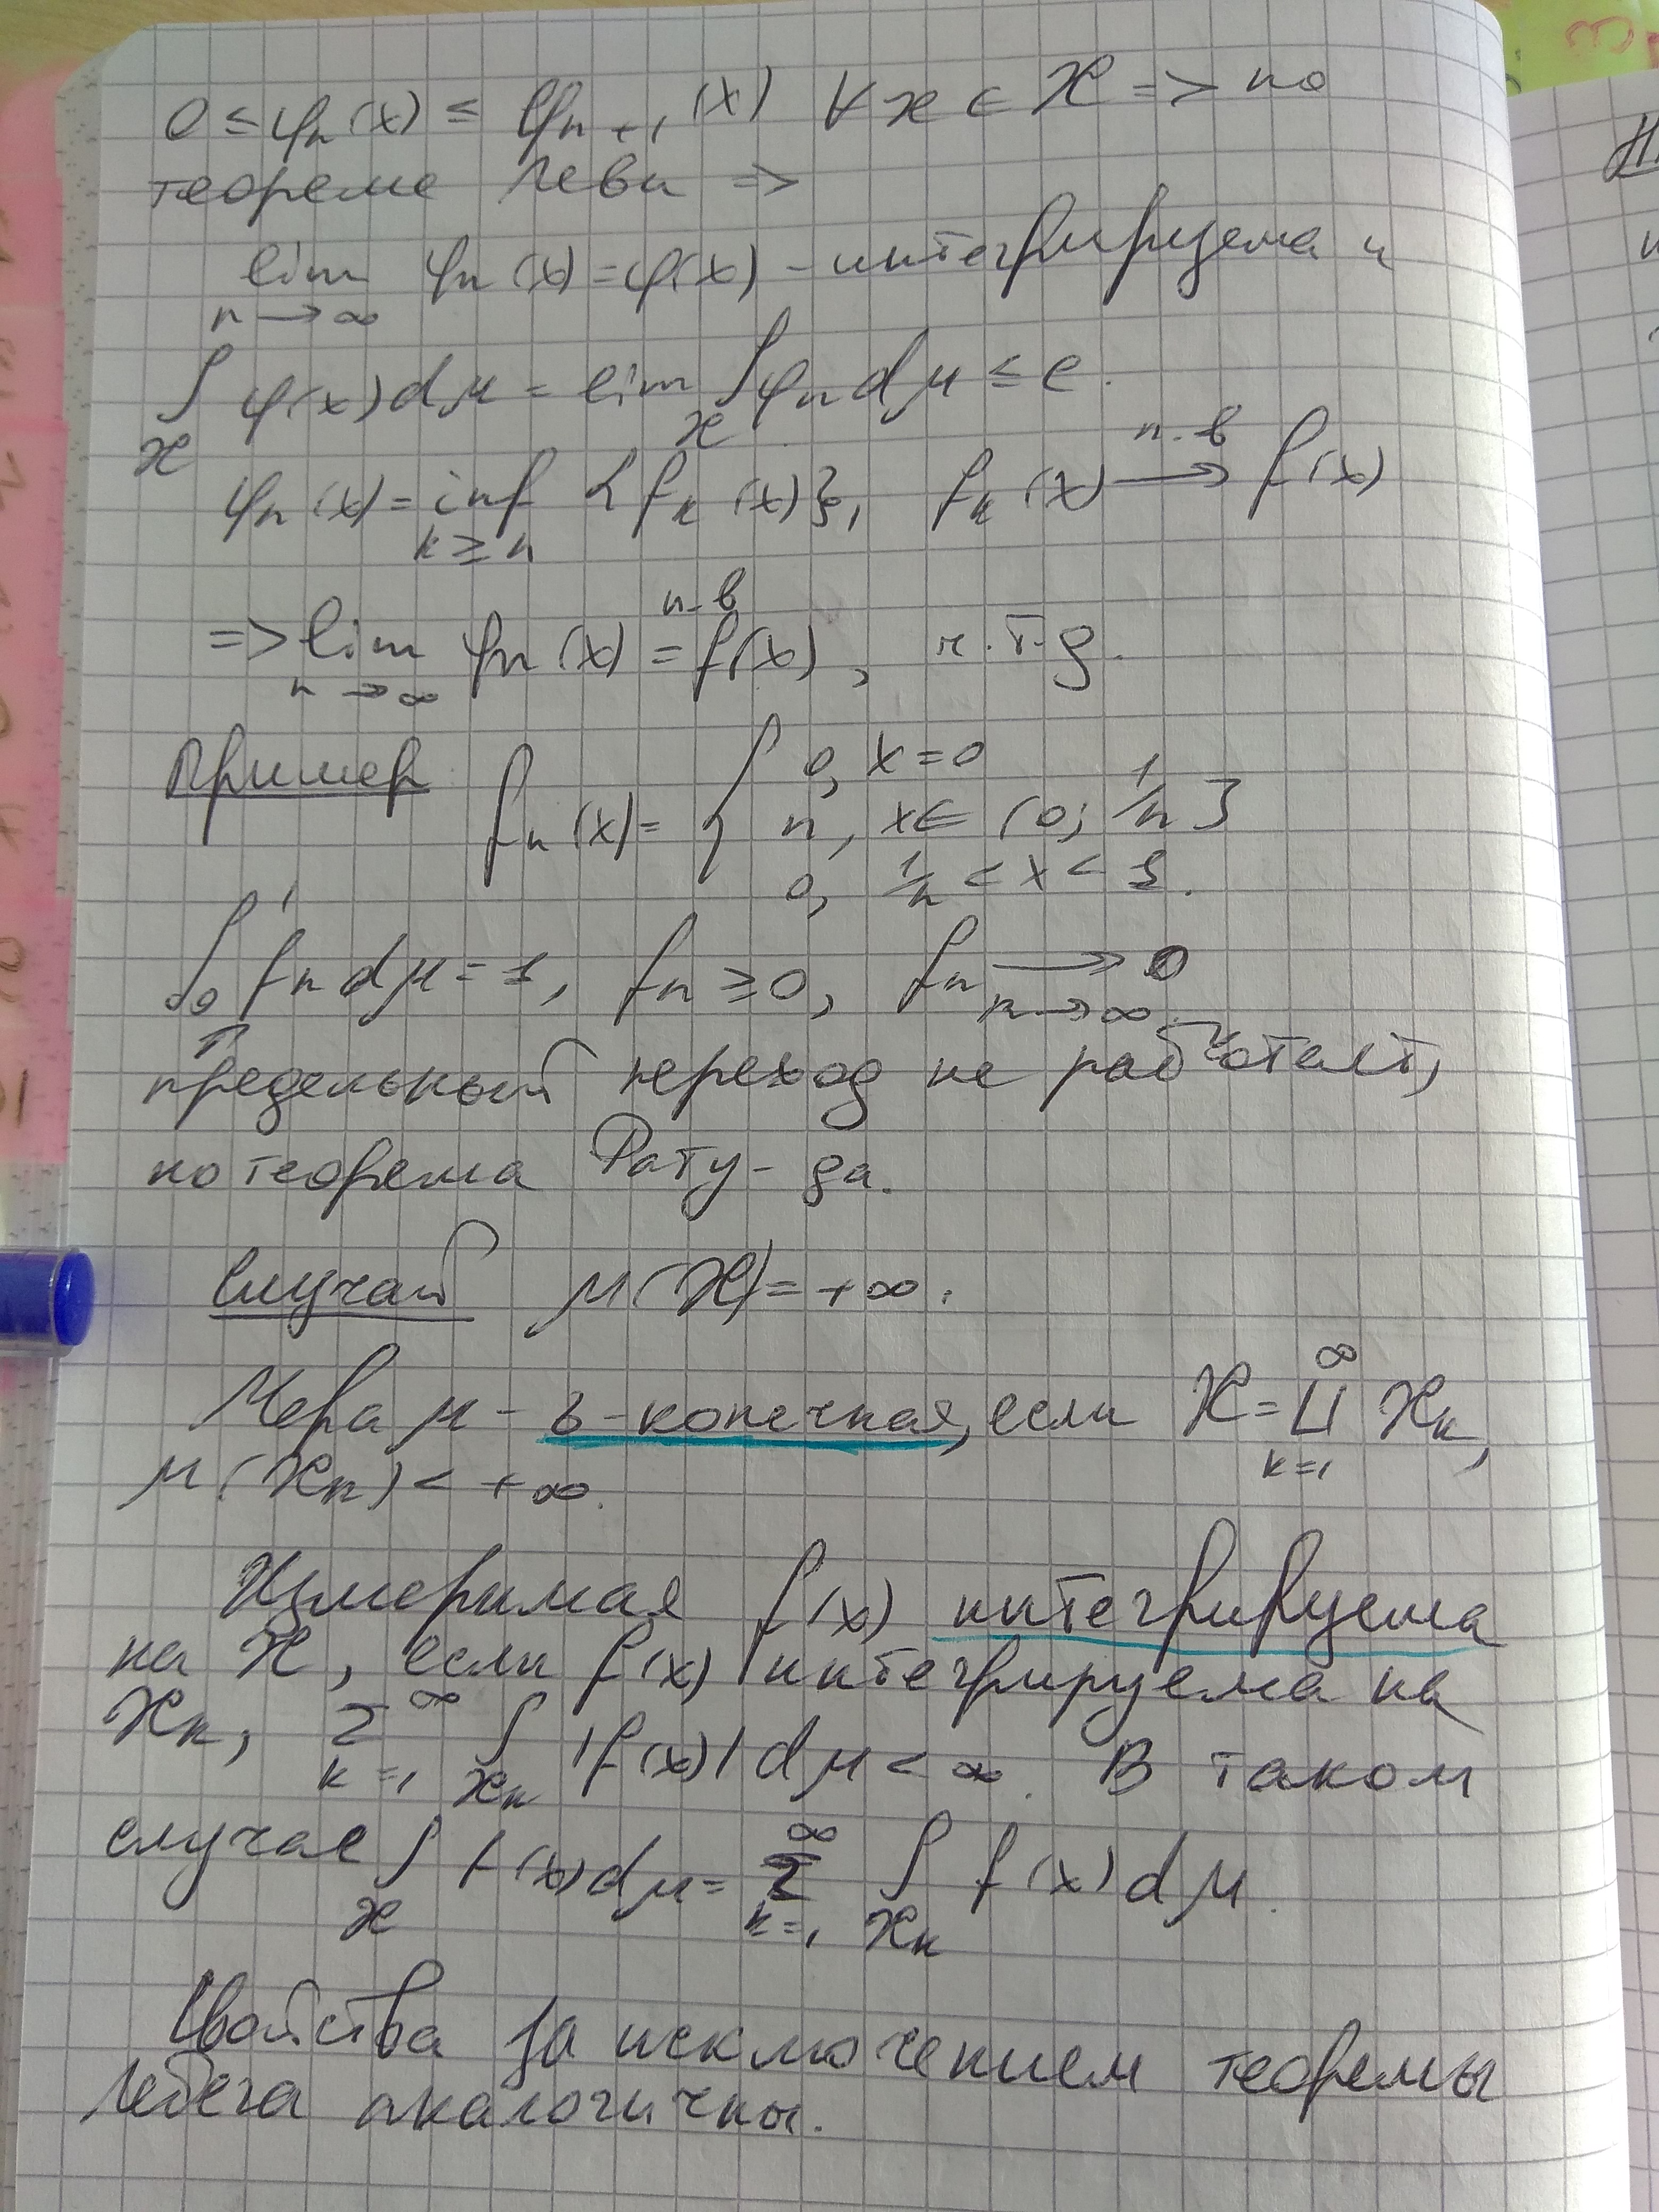 0 ≤ φₙ(x) ≤ φₙ₊₁(x) ∀x ∈ X => по
теореме Леви =>
lim n→∞ φₙ(x) = φ(x) - интегрируема и
∫_X φ(x)dμ = lim ∫_X φₙdμ ≤ c.
φₙ(x) = inf k≥n {fₖ(x)}, fₖ(x) →п.в f(x)
=> lim n→∞ φₙ(x) =п.в f(x), ч.т.д.
Пример fₙ(x) = { 0, x=0
n, x∈(0; 1/n]
0, 1/n < x < 1.
∫₀¹ fₙdμ = 1, fₙ ≥ 0, fₙ → n→∞ 0
предельный переход не работает,
но теорема Фату - да.
Случай μ(X) = +∞.
Мера μ - σ-конечная, если X = ⊔ k=1 ∞ Xₖ,
μ(Xₖ) < +∞.
Измеримая f(x) интегрируема
на X, если f(x) интегрируема на
Xₖ, Σ k=1 ∞ ∫_Xₖ |f(x)|dμ < ∞. В таком
случае ∫_X f(x)dμ = Σ k=1 ∞ ∫_Xₖ f(x)dμ.
Свойства за исключением теоремы
Лебега аналогичны.